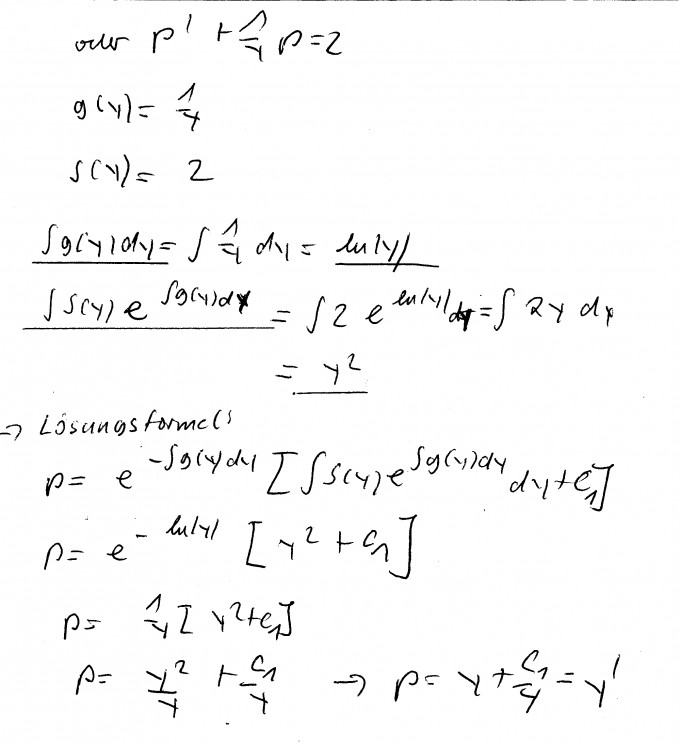 oder p' + 1/y p = 2
g(y) = 1/y
s(y) = 2
∫g(y)dy = ∫ 1/y dy = ln|y|
∫ s(y) e^{∫g(y)dy} = ∫ 2 e^{ln|y|} dy = ∫ 2y dy
= y²
→ Lösungsformel:
p = e^{-∫g(y)dy} [∫ s(y) e^{∫g(y)dy} dy + C₁]
p = e^{-ln|y|} [y² + C₁]
p = 1/y [y² + C₁]
p = y²/y + C₁/y → p = y + C₁/y = y'